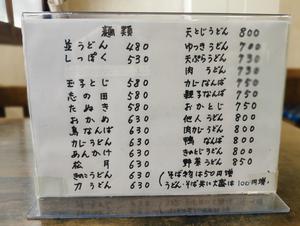 麺類
並うどん 480
しっぽく 530
玉子とじ 580
志の田 580
たぬき 580
おかめ 630
鳥なんば 630
カレうどん 630
あんかけ 630
松月 630
きのこうどん 630
力うどん 630
天とじうどん 800
ゆっきうどん
天ぷらうどん
肉うどん
カレなんば 750
親子なんば 750
おかとじ 750
他人うどん 800
肉カレうどん 800
鴨なんば 800
きのこあんかけ 850
野菜うどん 850
(そば物は50円増
うどん・そば共に大盛は100円増)